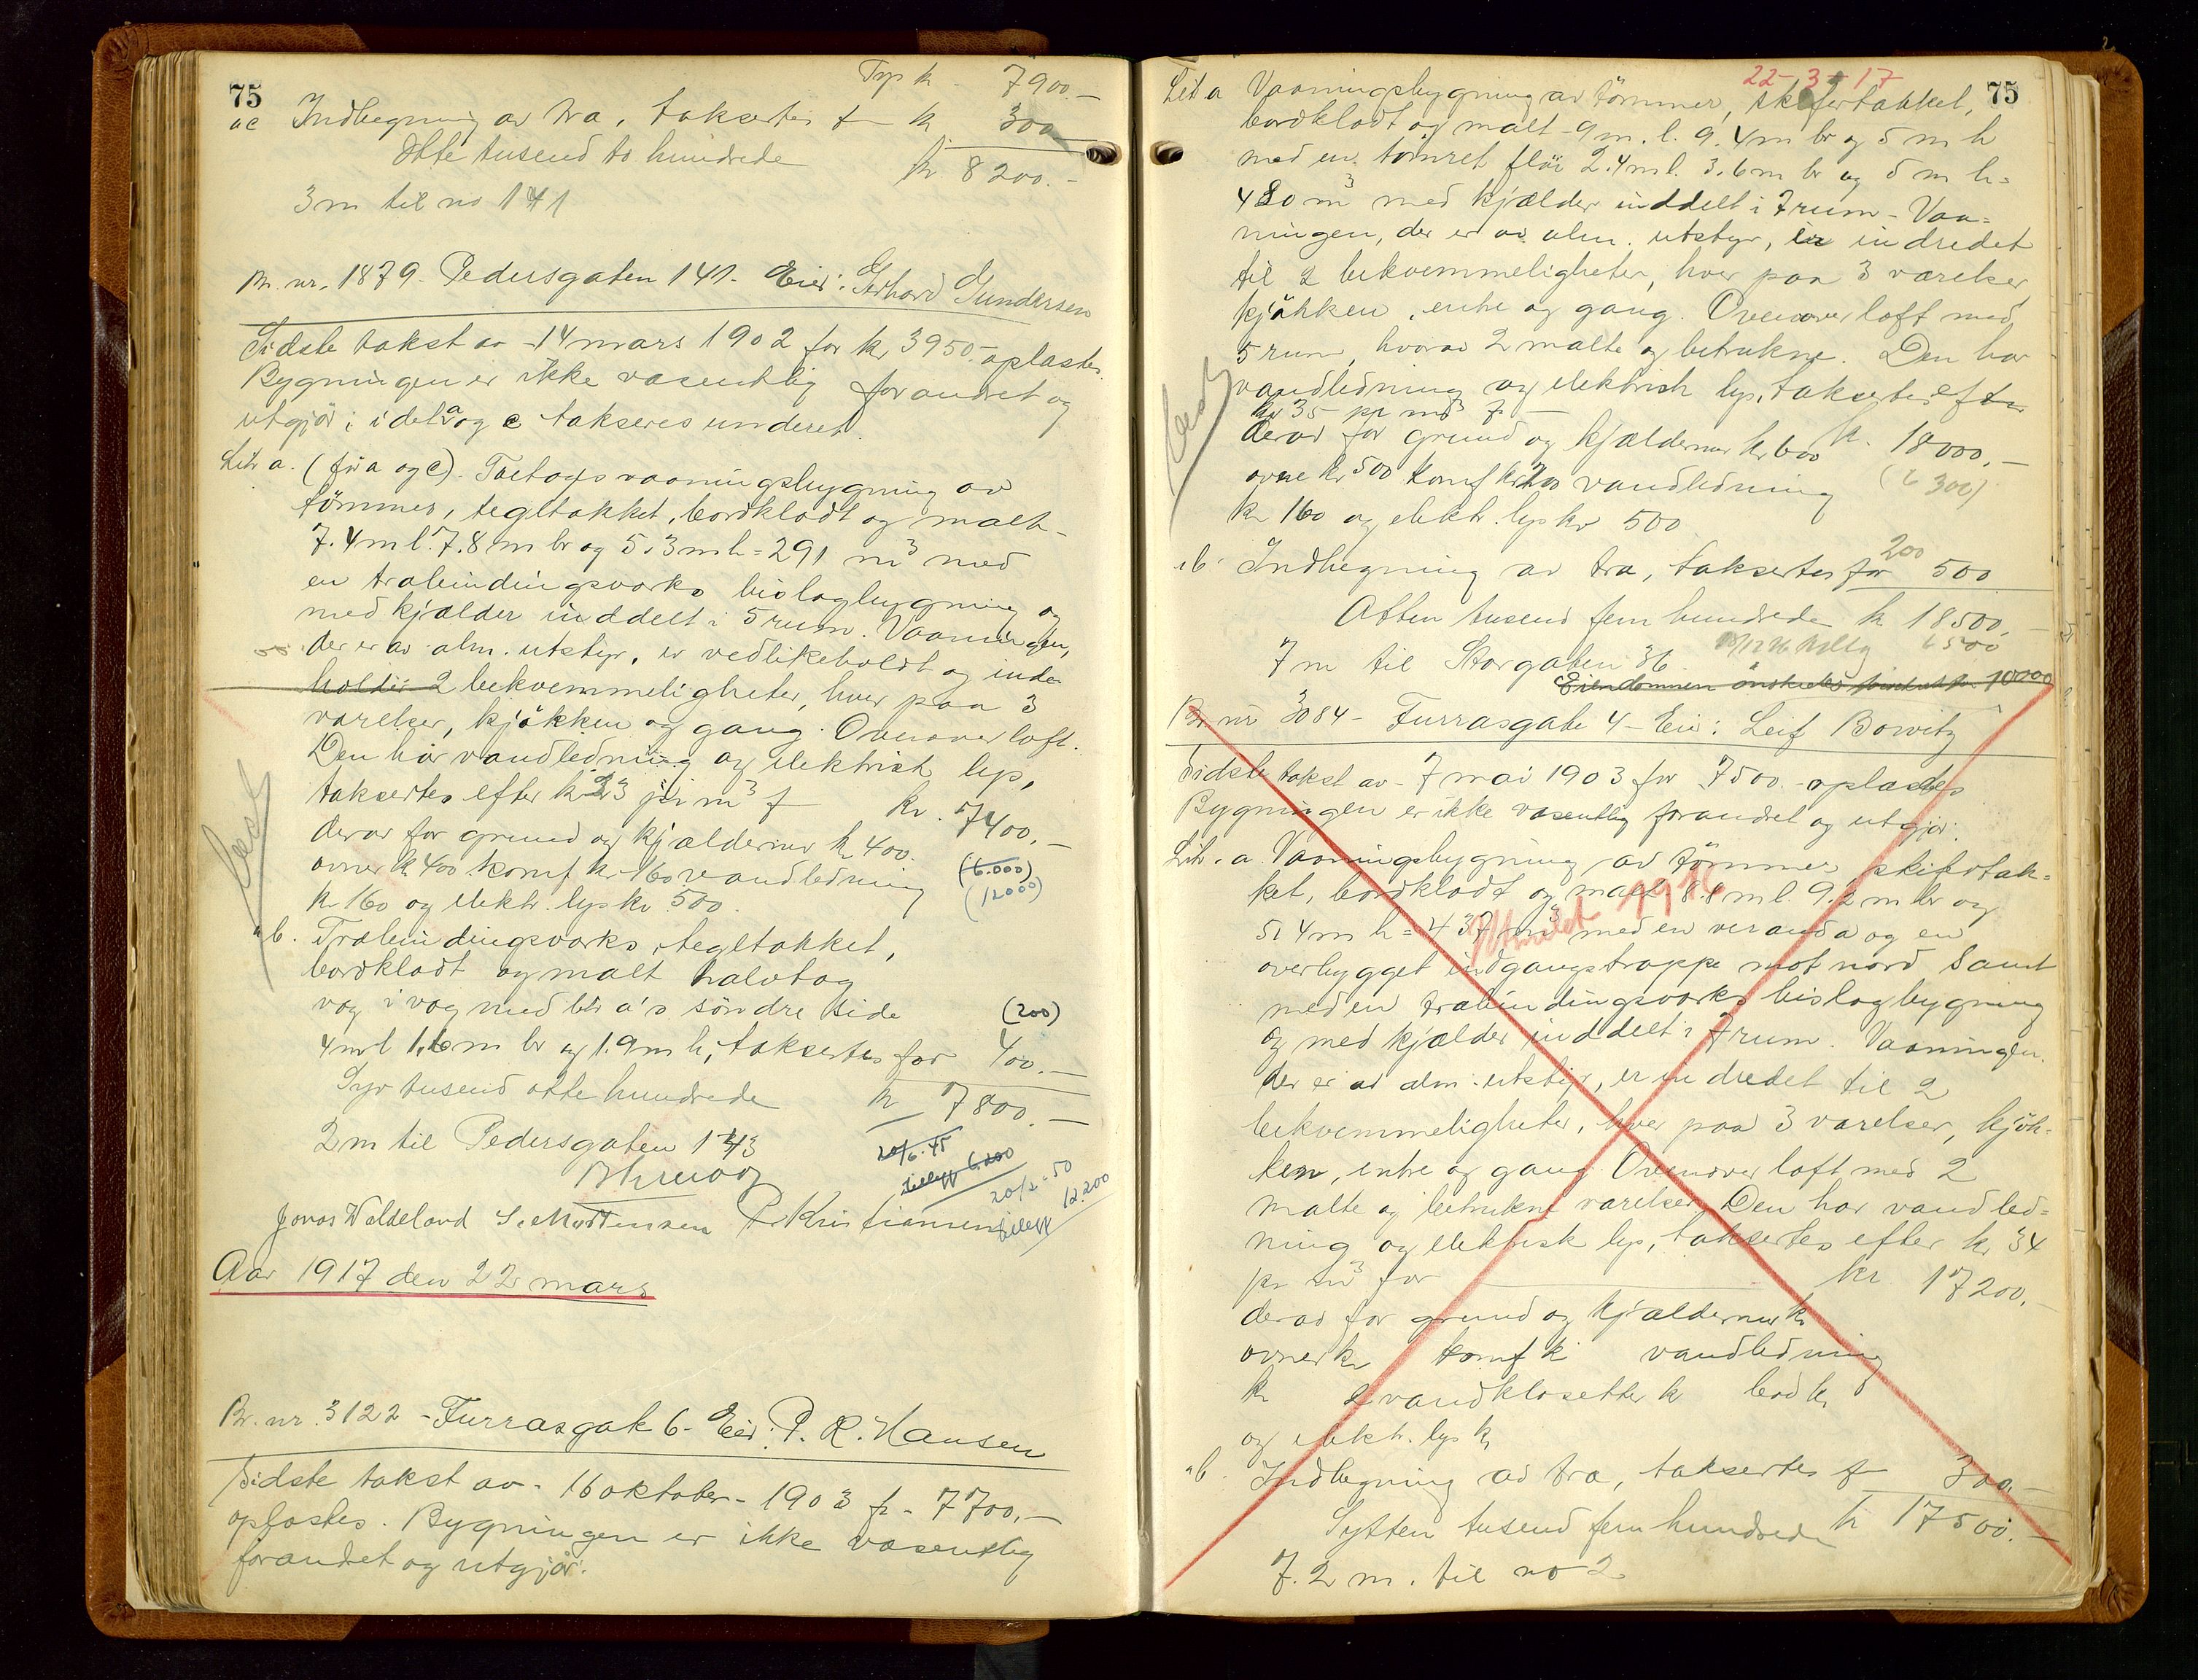 75
Trp kr - 7900.-
ac Indhegning av træ, takseres f kr 300
Otte tusend to hundrede kr 8200.-
3 m til no 141
Br. nr. 1879 - Pedersgaten 141 - Eier: Gerhard Gundersen
Sidste takst av - 14 mars 1902 for kr 3950.- oplæstes.
Bygningen er ikke væsentlig forandret og
utgjör; i det a og c takseres under et.
Litr a. (för a og c). Toetages vaaningsbygning av
tömmer, tegltækket, bordklædt og malt -
7.4 m l. 7.8 m br og 5.3 m h = 291 m³ med
en træbindingsværks bislagbygning og
med kjælder inddelt i 5 rum. Vaaningen,
der er av alm. utstyr, er vedlikeholdt og inde-
holder 2 bekvemmeligheter, hver paa 3
værelser, kjökken og gang. Ovenover loft.
Den har vandledning og elektrisk lys,
taksertes efter kr 23 pr m³ f kr. 7400.-
derav for grund og kjældermur kr 400.
ovner kr 400 komf kr 160 vandledning (6.000)
kr 160 og elektr. lys kr 500. (12000)
" b. Træbindingsværks, tegltækket,
bordklædt og malt halvtag
væg i væg med litr a's söndre side (200)
4 m l 1.6 m br og 1.9 m h, taksertes for 400.-
Syv tusend otte hundrede kr 7800.-
2 m til Pedersgaten 143
20/6-45
tillegg 6.200
20/2-50
tillegg 12.200
Jonas Waldeland S. Mortensen P. Kristiansen
Aar 1917 den 22 mars
Br. nr. 3122 - Furrasgate 6 - Eier: P. R. Hansen
Sidste takst av - 16 oktober - 1903 fr - 7700.-
oplæstes. Bygningen er ikke væsentlig
forandret og utgjör:
22-3-17
75
Litr a Vaaningsbygning av tömmer, skifertækket,
bordklædt og malt - 9 m. l. 9.4 m br og 5 m h
med en tömret flöi 2.4 m l. 3.6 m br og 5 m h =
480 m³ med kjælder inddelt i 7 rum - Vaa=
ningen, der er av alm. utstyr, er indredet
til 2 bekvemmeligheter, hver paa 3 værelser,
kjökken, entre og gang. Ovenover loft med
5 rum, hvorav 2 malte og betrukne. Den har
vandledning og elektrisk lys, taksertes efter
kr 35 pr m³ f - kr. 18000.-
derav for grund og kjældermur kr 600
ovne kr 500 komf kr 200 vandledning (6300)
kr 160 og elektr. lys kr 500
" b. Indhegning av træ, taksertes for 500
200
Atten tusend fem hundrede kr 18500.-
6500
7 m til Storgaten 36.
Eiendommen önskedes forsikret for 10000
Br nr 3084 - Furrasgate 4 - Eier: Leif Bowitz
Sidste takst av - 7 mai 1903 for 7500.- oplæstes
Bygningen er ikke væsentlig forandret og utgjör:
Litr. a. Vaaningsbygning av tömmer, skifertæk=
ket, bordklædt og malt 8.8 m l. 9.2 m br og
5.4 m h = 437 m³ med en veranda og en
overbygget indgangstrappe mot nord samt
med en træbindingsværks bislagbygning
og med kjælder inddelt i 7 rum. Vaaningen.
der er av alm. utstyr, er indredet til 2
bekvemmeligheter, hver paa 3 værelser, kjök=
ken, entre og gang. Ovenover loft med 2
malte og betrukne værelser. Den har vandled=
ning og elektrisk lys, taksertes efter kr 34
pr m³ for kr 17200.-
derav for grund og kjældermur kr
ovner kr komf kr vandledning
kr 2 vandklosetter kr bad kr
og elektr. lys kr
" b. Indhegning av træ, taksertes f 300.-
Sytten tusend fem hundrede kr 17500.-
7.2 m. til no 2.